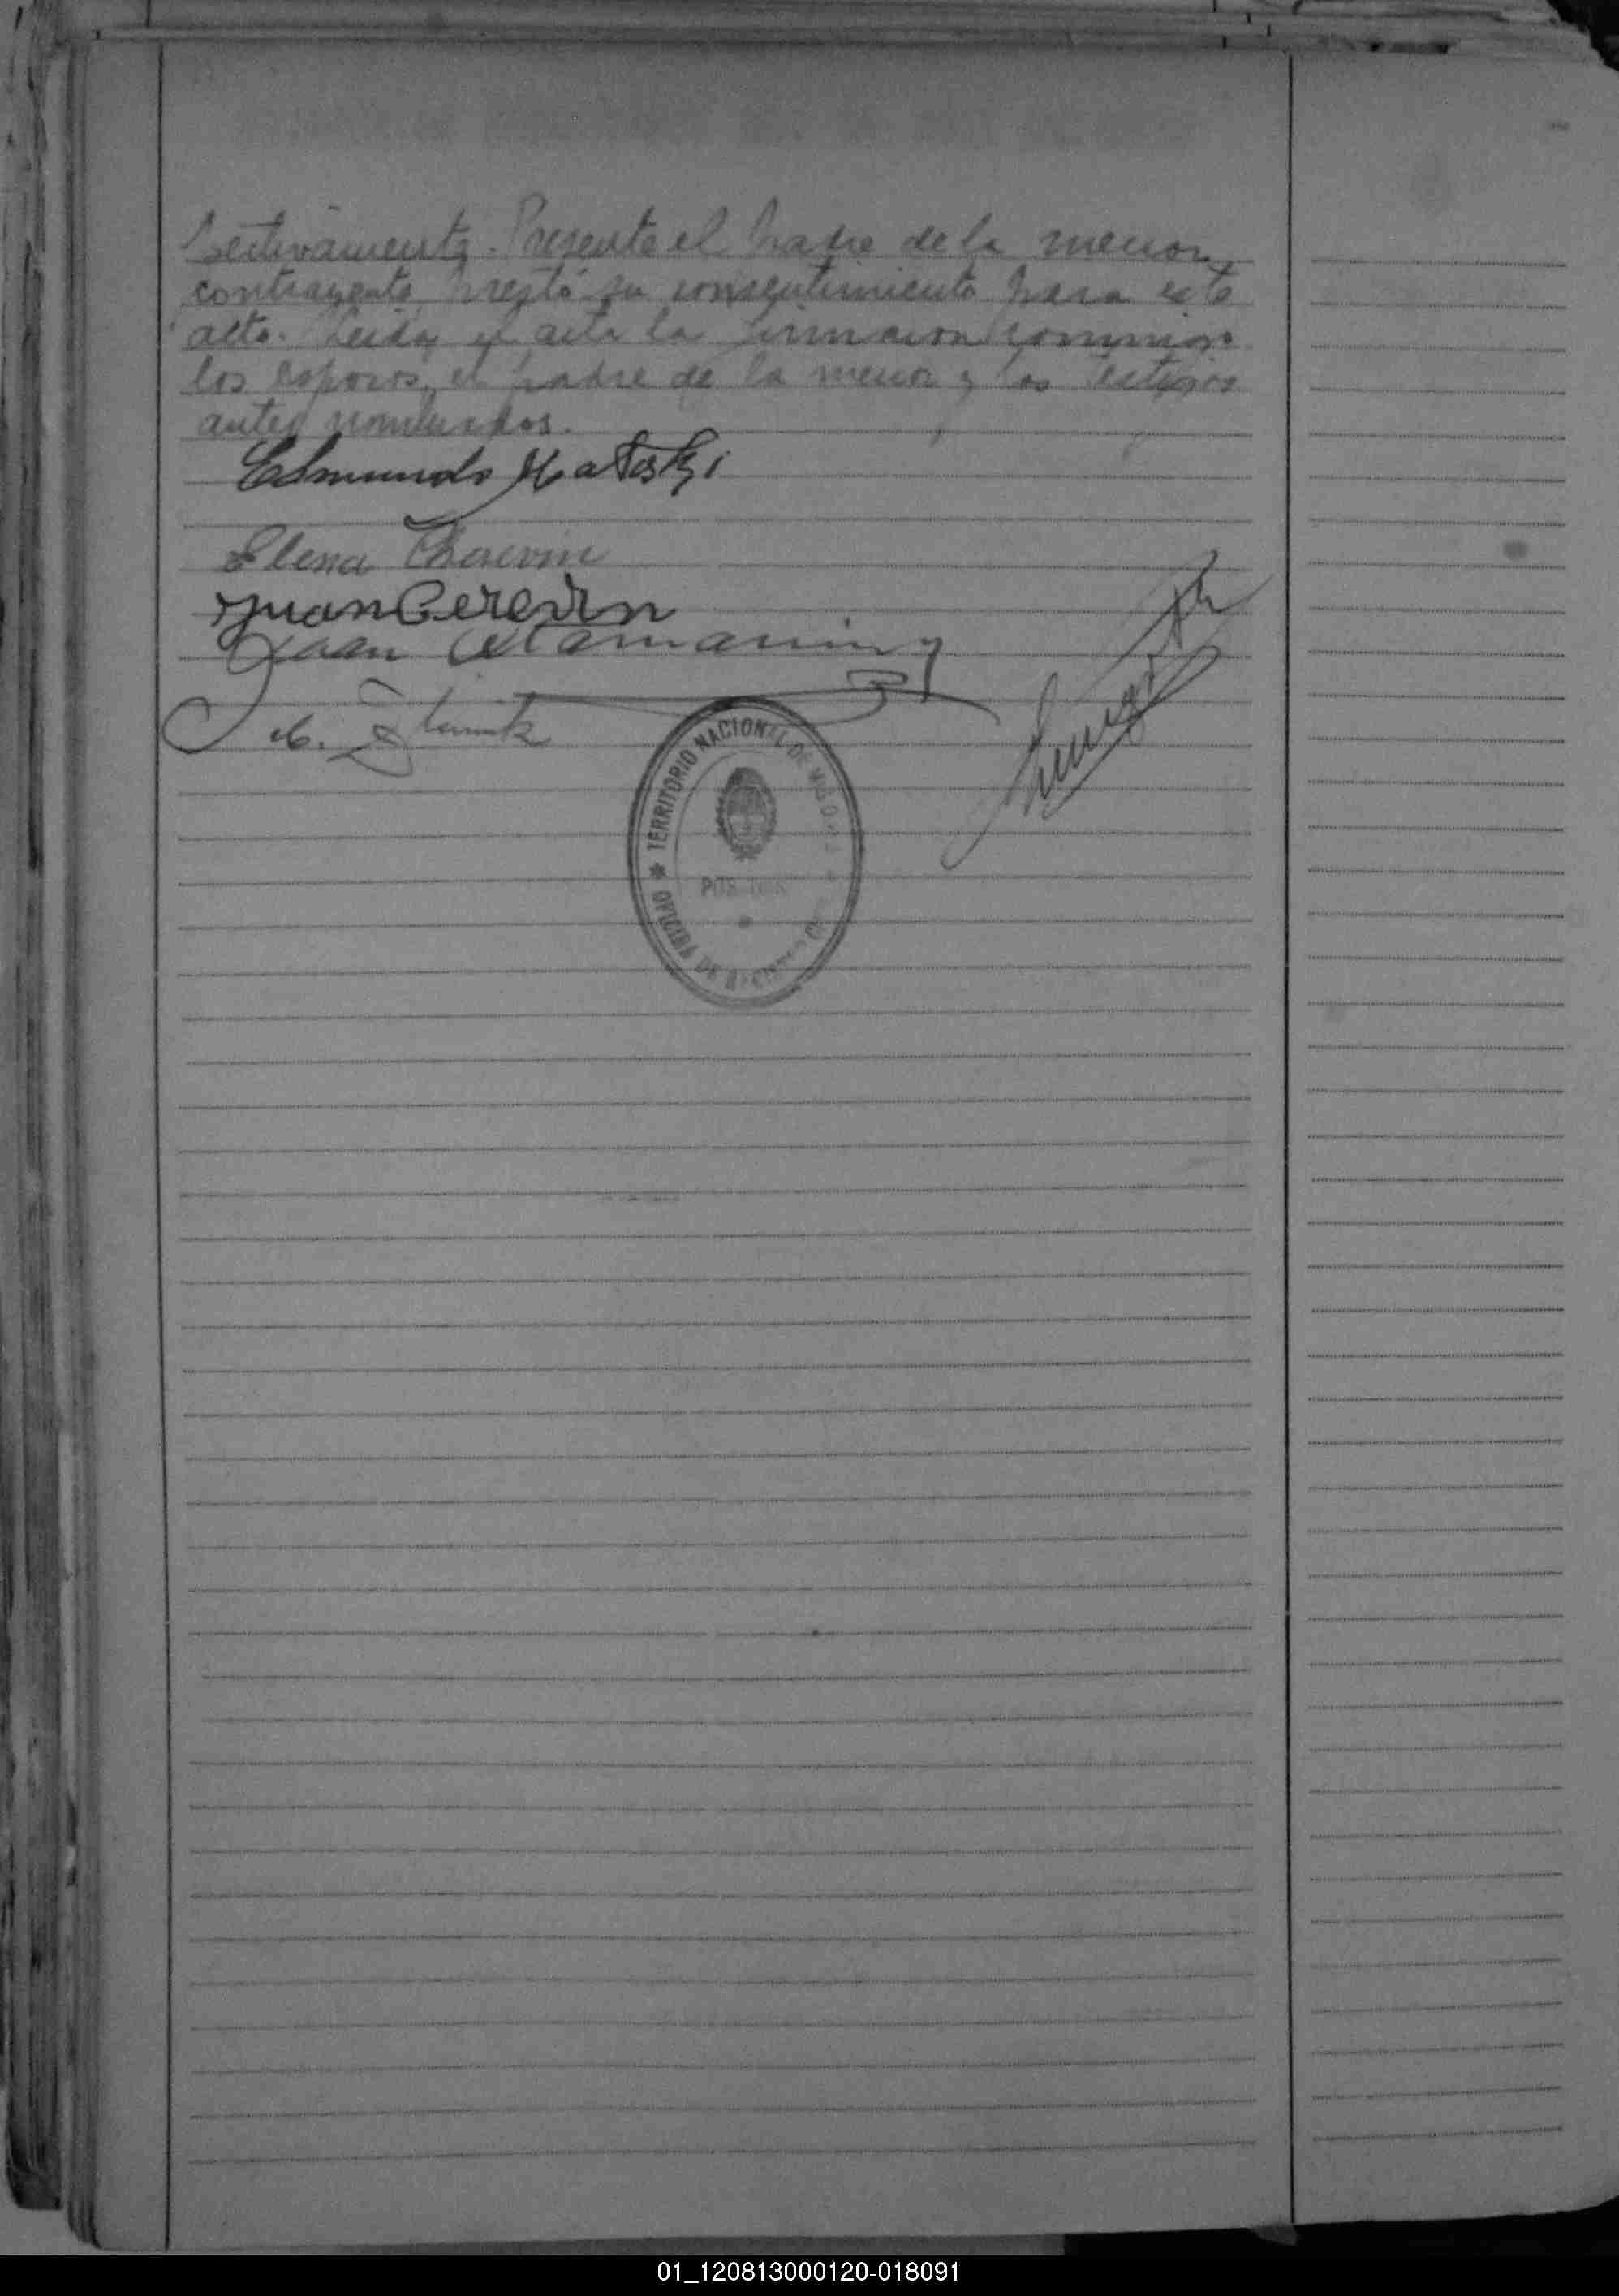 pectivamente. Presente el padre de la menor
contrayente, prestó su consentimiento para este
acto. Leida el acta la firmaron conmigo
los esposos, el padre de la menor y los testigos
antes nombrados.
Edmundo Hatoski
Elena Cherevin
Juan Cerevin
Juan
TERRITORIO NACIONAL DE MISIONES
OFICINA DE REGISTRO
01_120813000120-018091